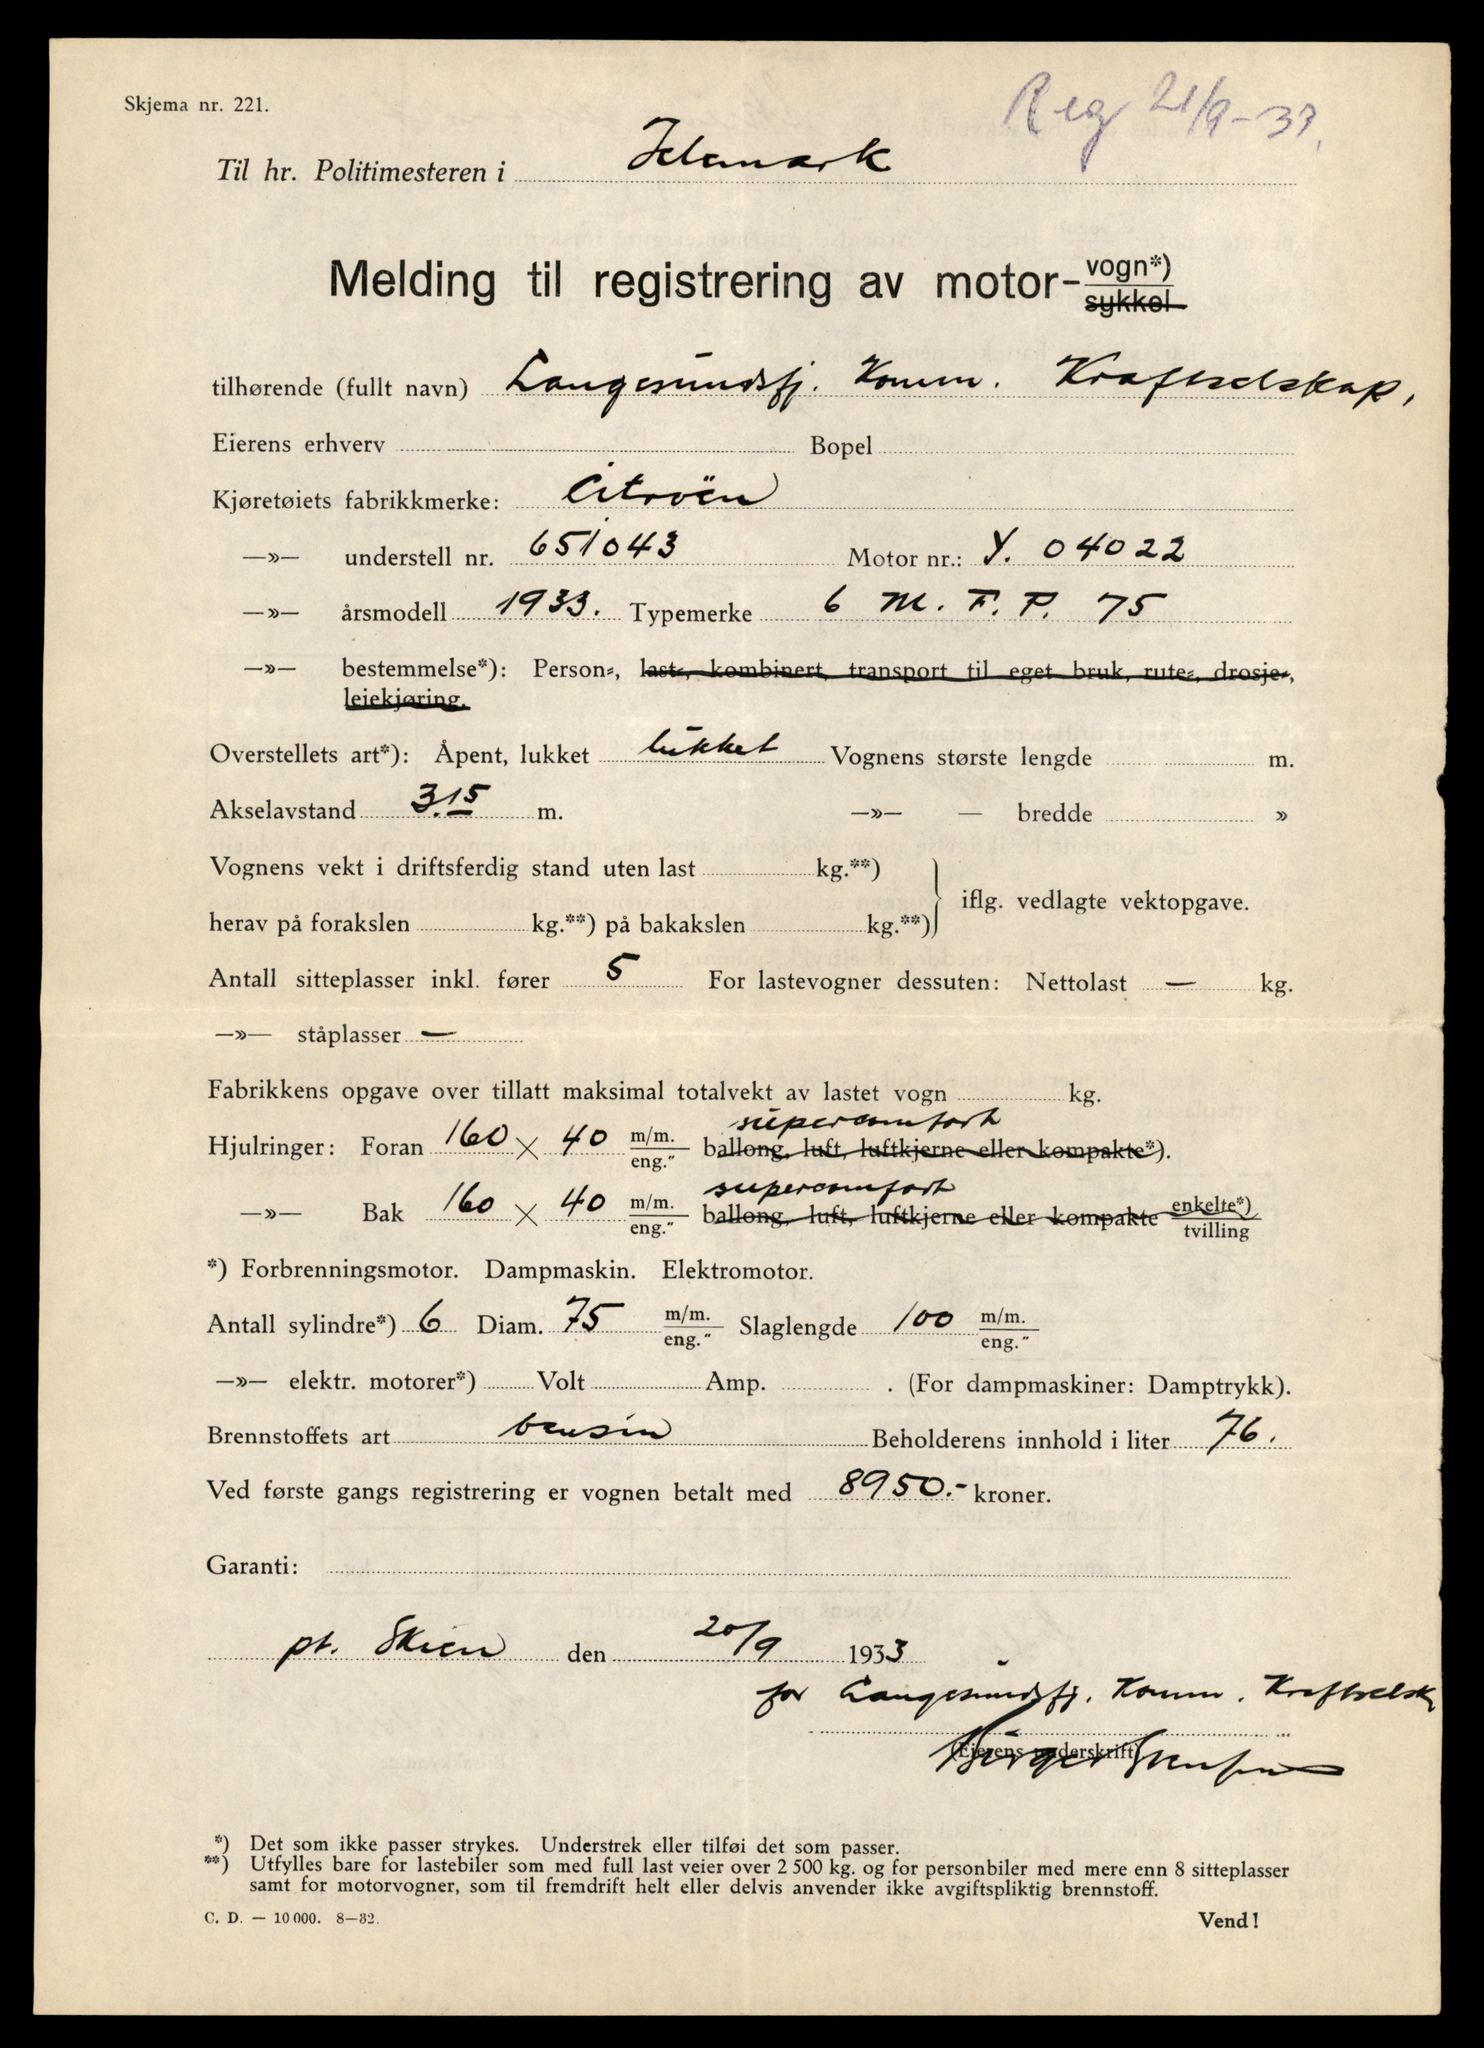 Skjema nr. 221.
Reg 21/9-33.
Til hr. Politimesteren i Telemark
Melding til registrering av motor-vogn*)
sykkel
tilhørende (fullt navn) Langesundsfj. Komm. Kraftselskap,
Eierens erhverv Bopel
Kjøretøiets fabrikkmerke: Citroën
—»— understell nr. 651043 Motor nr.: Y. 04022
—»— årsmodell 1933. Typemerke 6 M. F. P. 75
—»— bestemmelse*): Person-, last-, kombinert, transport til eget bruk, rute-, drosje-,
leiekjøring.
Overstellets art*): Åpent, lukket lukket Vognens største lengde m.
Akselavstand 3.15 m. —»— — bredde »
Vognens vekt i driftsferdig stand uten last kg.**)
iflg. vedlagte vektopgave.
herav på forakslen kg.**) på bakakslen kg.**)
Antall sitteplasser inkl. fører 5 For lastevogner dessuten: Nettolast — kg.
—»— ståplasser —
Fabrikkens opgave over tillatt maksimal totalvekt av lastet vogn kg.
supercomfort
Hjulringer: Foran 160 × 40 m/m. eng." ballong, luft, luftkjerne eller kompakte*).
supercomfort
—»— Bak 160 × 40 m/m. eng." ballong, luft, luftkjerne eller kompakte enkelte*) tvilling
*) Forbrenningsmotor. Dampmaskin. Elektromotor.
Antall sylindre*) 6 Diam. 75 m/m. eng." Slaglengde 100 m/m. eng."
—»— elektr. motorer*) Volt Amp. . (For dampmaskiner: Damptrykk).
Brennstoffets art bensin Beholderens innhold i liter 76.
Ved første gangs registrering er vognen betalt med 8950.- kroner.
Garanti:
pt. Skien den 20/9 1933
for Langesundsfj. Komm. Kraftselsk
(Eierens underskrift)
Birger
*) Det som ikke passer strykes. Understrek eller tilføi det som passer.
**) Utfylles bare for lastebiler som med full last veier over 2 500 kg. og for personbiler med mere enn 8 sitteplasser
samt for motorvogner, som til fremdrift helt eller delvis anvender ikke avgiftspliktig brennstoff.
C. D. — 10 000. 8—32.
Vend!